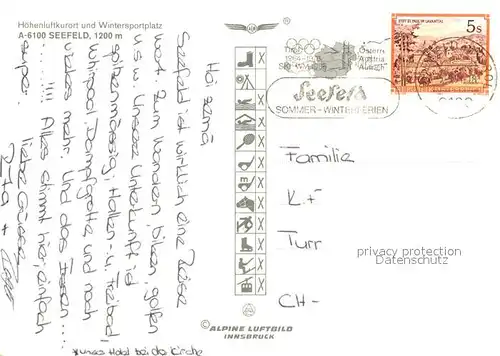 Höhenluftkurort und Wintersportplatz
A-6100 SEEFELD, 1200 m
Hoi zämä
Seefeld ist wirklich eine Reise
wert. Zum Wandern, biken, golfen
u.s.w. Unsere Unterkunft ist
spitzenmässig; Hallen- u. Freibad,
Whirlpool Dampfgrotte und noch
vieles mehr. Und das Essen....
....!!!! Alles stimmt hier einfach
super.
Liebe Grüsse
unser Hotel bei der Kirche
5s
Seefeld
SOMMER - WINTERFERIEN
Familie
K. +
Turr
CH-
privacy protection
Datenschutz
© ALPINE LUFTBILD
INNSBRUCK